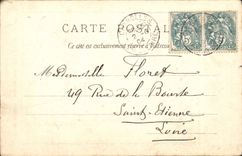 CARTE POSTALE
Ce côté est exclusivement réservé à l'adresse
Mademoiselle Floret
49 Rue de la Bourse
Saint-Etienne
Loire